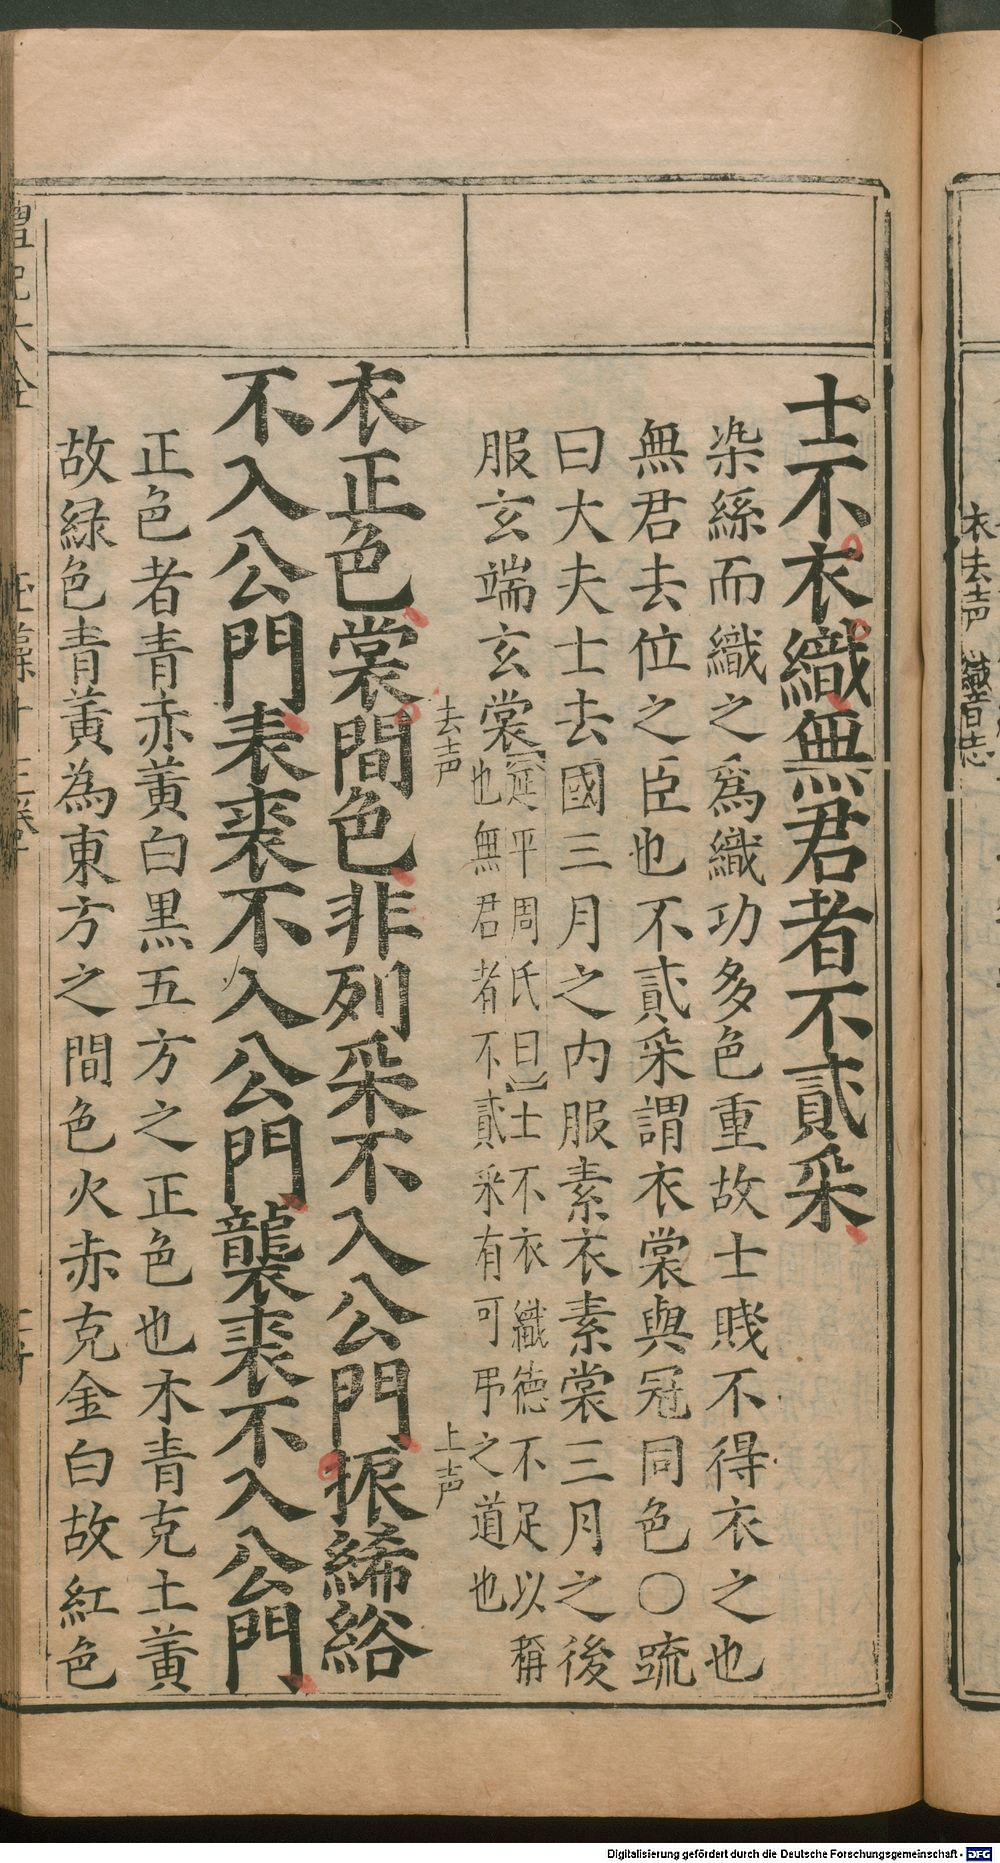 士不衣織無君者不貳采
染絲而織之爲織功多色重故士賤不得衣之也
無君去位之臣也不貳采謂衣裳與冠同色○疏
曰大夫士去國三月之内服素衣素裳三月之後
服玄端玄裳
延平周氏曰士不衣織德不足以稱
也無君者不貳采有可弔之道也
去声
上声
衣正色裳間色非列采不入公門振絺綌
不入公門表裘不入公門襲裘不入公門
正色者青赤黄白黒五方之正色也木青克土黄
故緑色青黄為東方之間色火赤克金白故紅色
衣去声 織音志
Digitalisierung gefördert durch die Deutsche Forschungsgemeinschaft - DFG